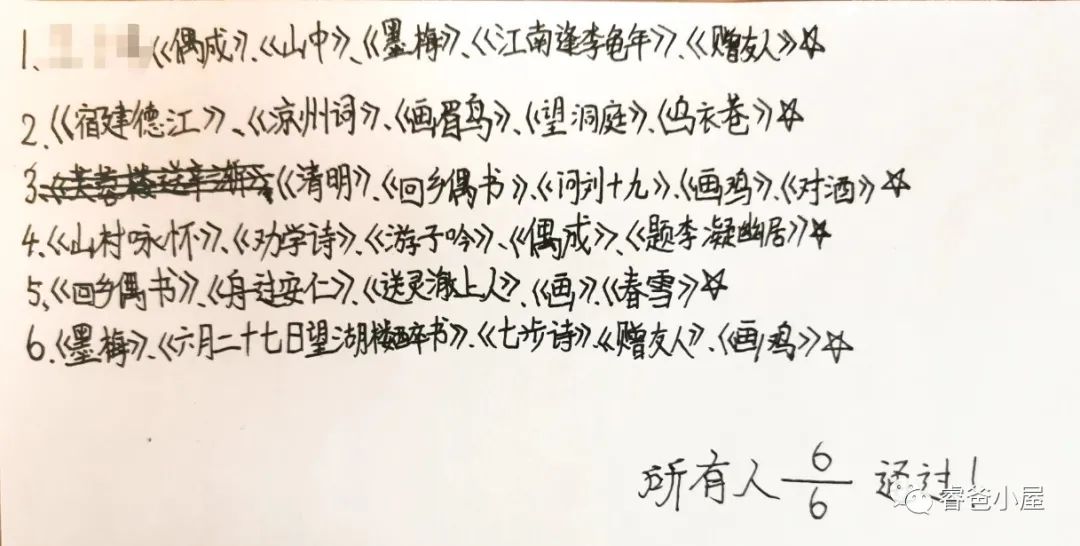 1、《偶成》、《山中》、《墨梅》、《江南逢李龟年》、《赠友人》☆
2、《宿建德江》、《凉州词》、《画眉鸟》、《望洞庭》、《乌衣巷》☆
3、《芙蓉楼送辛渐》、《清明》、《回乡偶书》、《问刘十九》、《画鸡》、《对酒》☆
4、《山村咏怀》、《劝学诗》、《游子吟》、《偶成》、《题李凝幽居》☆
5、《回乡偶书》、《舟过安仁》、《送灵澈上人》、《画》、《春雪》☆
6、《墨梅》、《六月二十七日望湖楼醉书》、《七步诗》、《赠友人》、《画鸡》☆
所有人 6/6 通过！
睿爸小屋